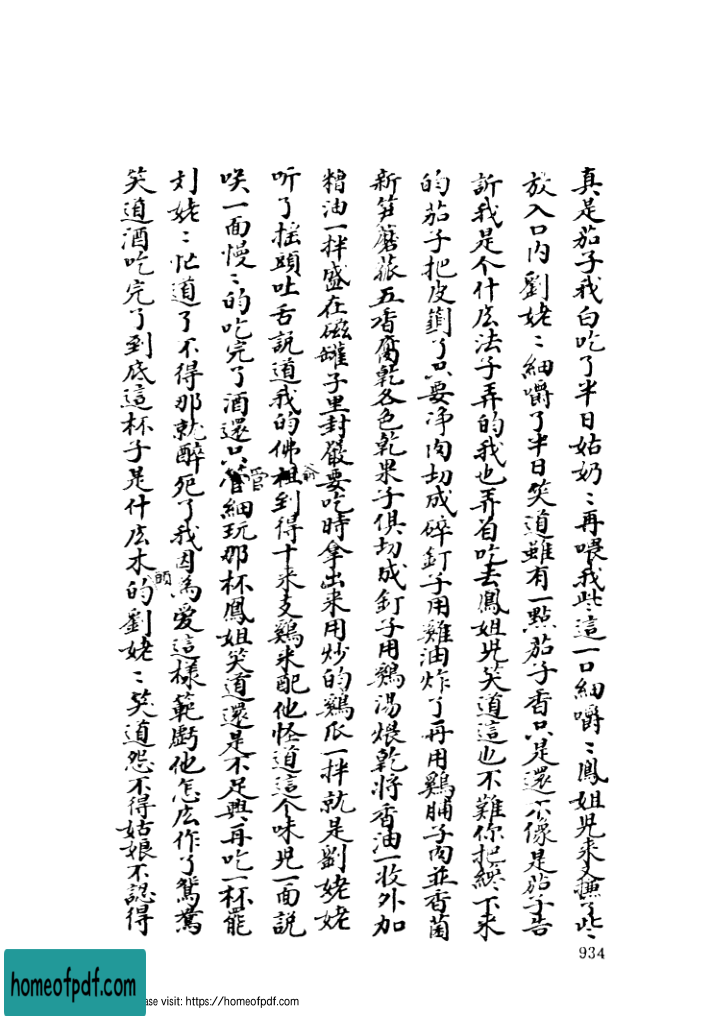 真是茄子我白吃了半日姑奶〻再喂我些這一口細嚼〻鳳姐児来又撫了些〻
放入口内劉姥〻細嚼了半日笑道雖有一點茄子香只是還不像是茄子告
訴我是个什広法子弄的我也弄着吃去鳳姐児笑道這也不難你把纔下来
的茄子把皮籖了只要净肉切成碎釘子用雞油炸了再用鷄脯子肉並香菌
新笋蘑菰五香腐乾各色乾果子俱切成釘子用鷄湯煨乾将香油一收外加
糟油一拌盛在磁罐子里封嚴要吃時拿出来用炒的鷄瓜一拌就是劉姥姥
听了摇頭吐舌説道我的佛祖到得十来支鷄来配他怪道這个味児一面説
咲一面慢〻的吃完了酒還只管細玩那杯鳳姐笑道還是不足興再吃一杯罷
刘姥〻忙道了不得那就醉死了我因為愛這樣範虧他怎広作了鴛鴦
笑道酒吃完了到底這杯子是什広木的劉姥〻笑道怨不得姑娘不認得
管
934
homeofpdf.com
ase visit: https://homeofpdf.com